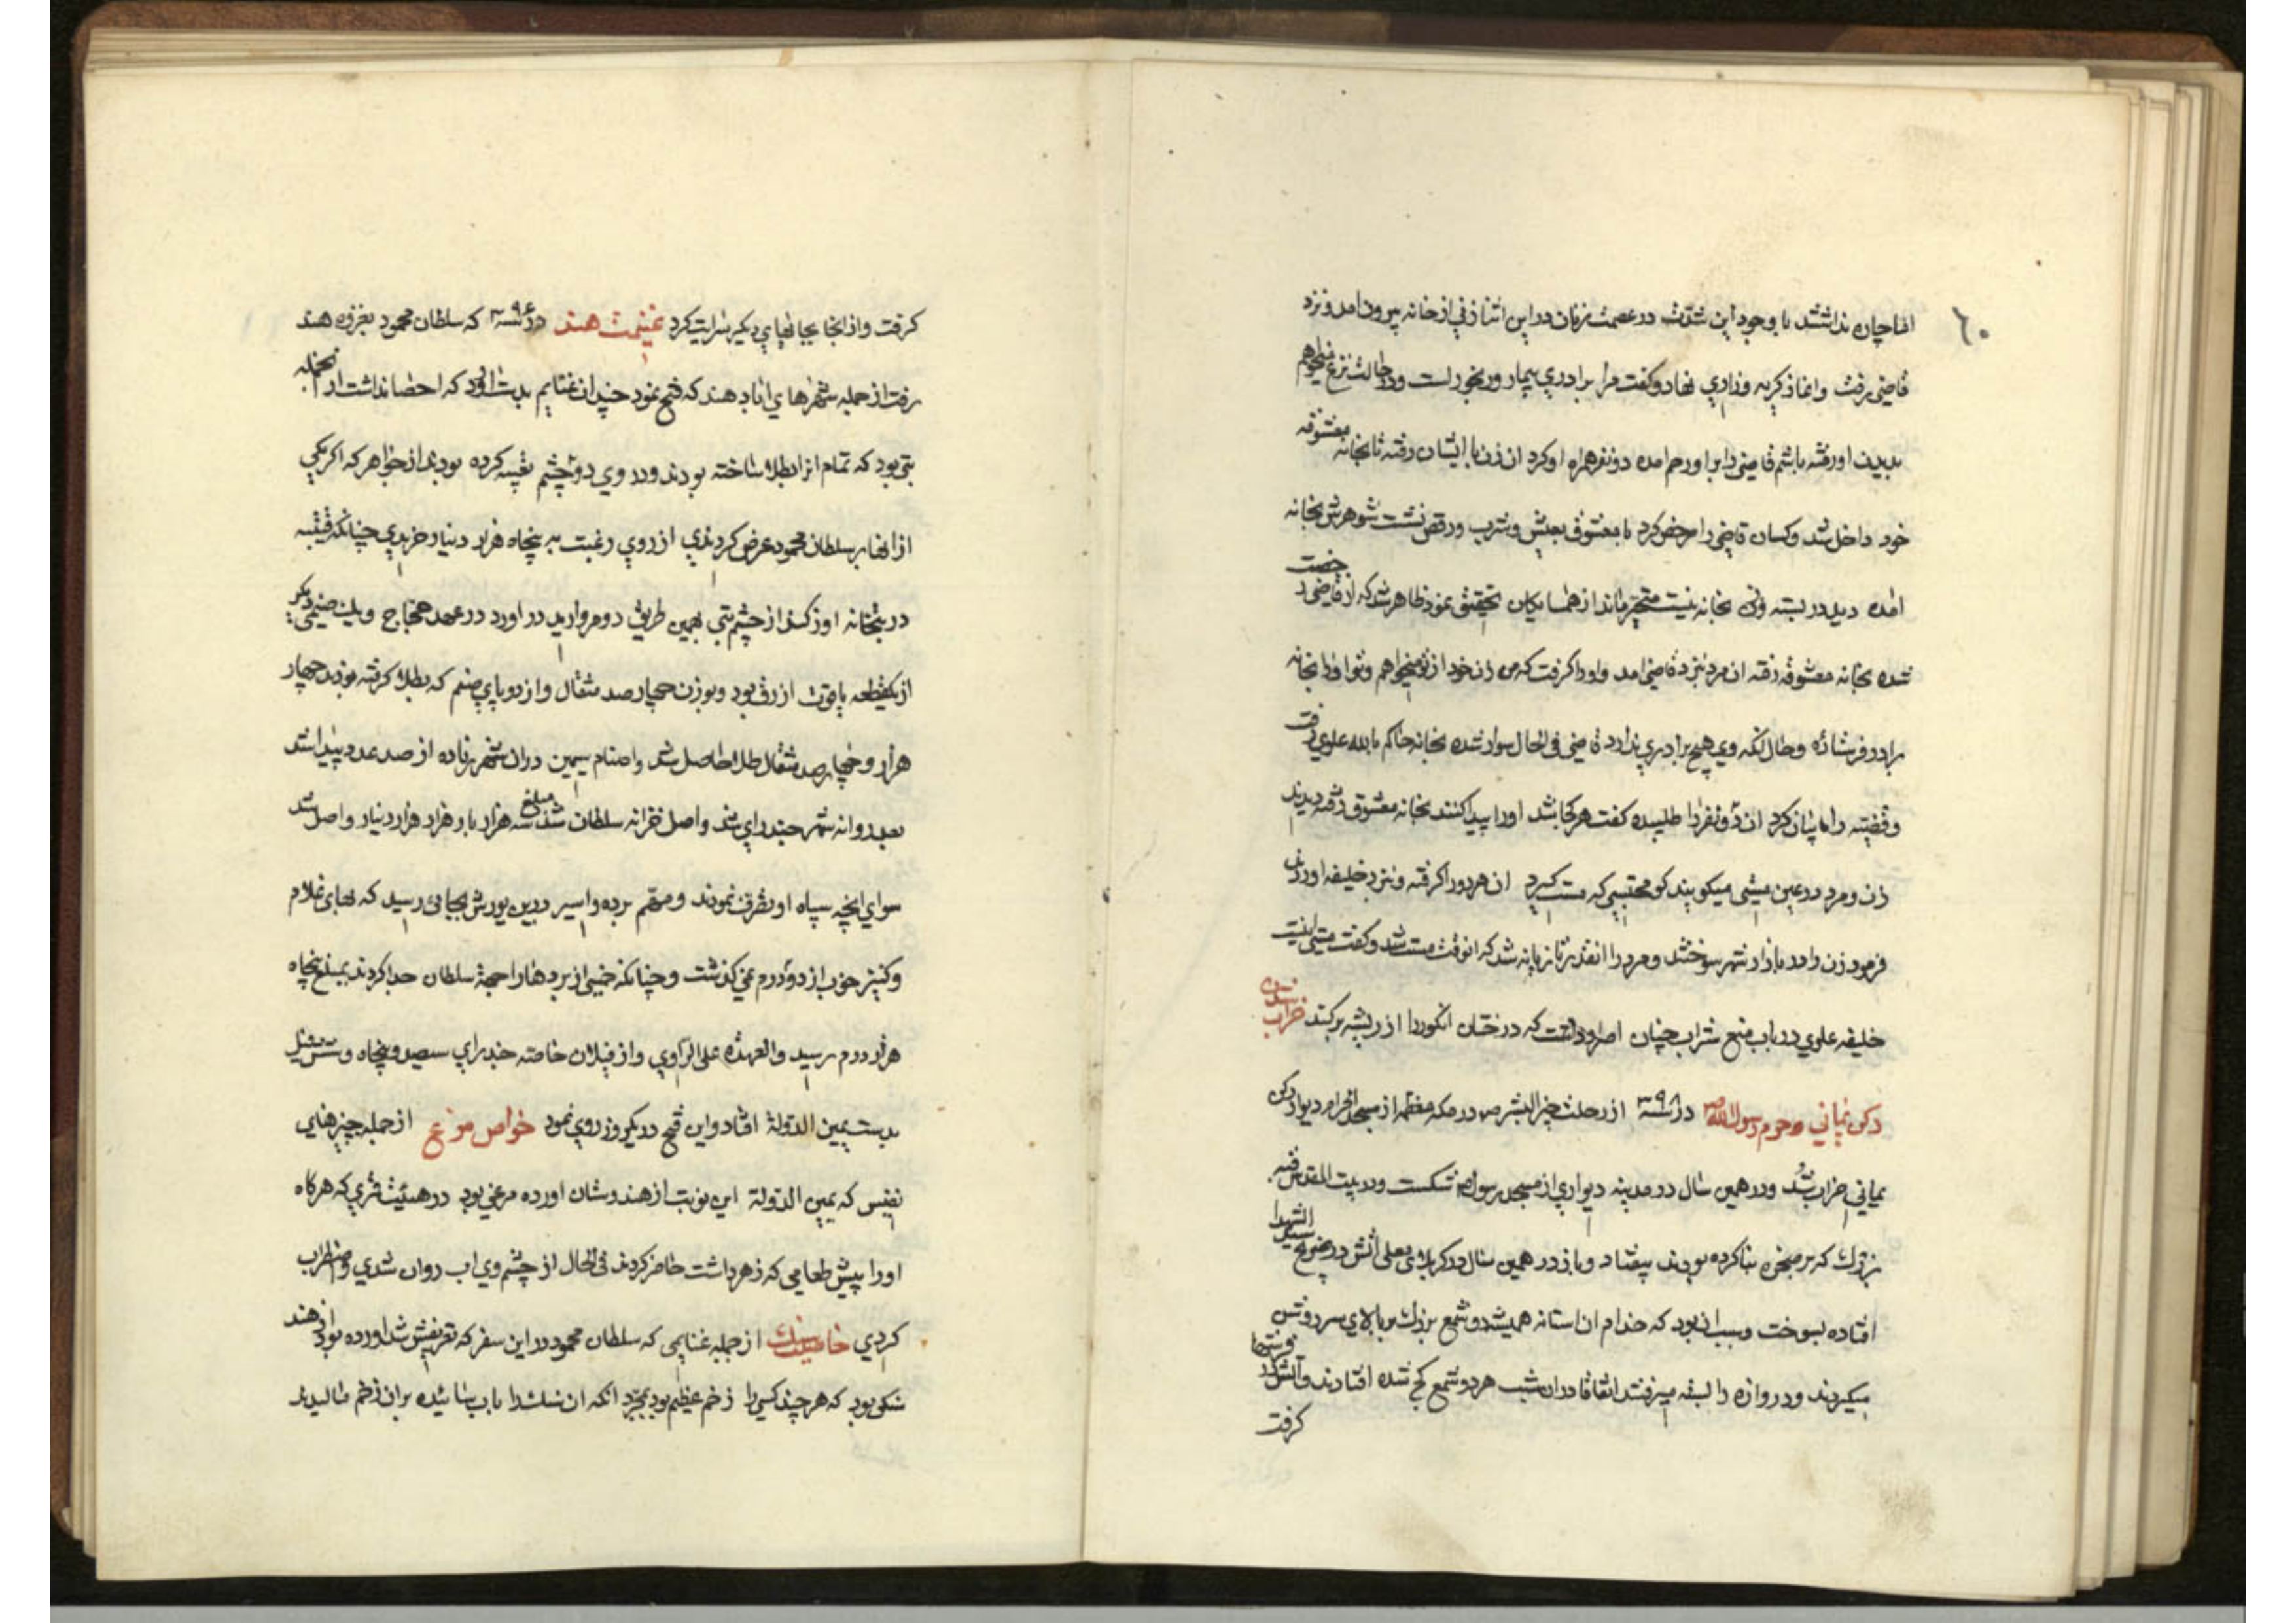 ٦٠
التماچیان نداشتند با وجود این شدت در عصمت زنان در این اثنا زنی از خانه بیرون امد و نزد
قاضی رفت و اغاز گریه و زاری نهاد و گفت مرا برادری بیمار و رنجور است و در حالت نزع میخواهم
بدیدن او رفته باشم قاضی را بر او رحم امده دو نفر همراه او کرد ان زن با ایشان رفته تا بخانه معشوقه
خود داخل شد و کسان قاضی را مرخص کرد با معشوق بعیش و شرب و رقص نشست شوهرش بخانه
امده دید در بسته و زن بخانه نیست متحیر ماند از همسایکان تحقیق نمود ظاهر شد که از قاضی رخصت
شده بخانه معشوقه رفته ان مرد بنزد قاضی امد و او را گرفت که من زن خود از تو میخواهم و تو او را بخانه
برادر فرستاده و حال انکه وی هیچ برادری ندارد قاضی فی الحال سوار شده بخانه حاکم بالله علوی رفت
و قضیه را بیان کرد ان دو نفر را طلبیده گفت هر کجا باشد او را پیدا کنند بخانه معشوق رفته دیدند
زن و مرد در عین مستی میکویند کو محتسبی که مست گیرد ان هر دو را گرفته و بنزد خلیفه اوردند
فرمود زن را در بازار شهر سوختند و مرد را انقدر تازیانه شد که انوقت مست شد و گفت مستی اینست
خلیفه علوی در باب منع شراب چنان اصرار داشت که درختان انکور را از ریشه برکند خراب شدن
رکن یمانی و حرم رسول الله ص در سنه ۳۹۸ از رحلت خیر البشر ص در مکه معظمه از مسجد الحرام دیوار رکن
یمانی خراب شد و در همین سال در مدینه دیواری از مسجد رسول ص شکست و در بیت المقدس قبه
بزرگ که بر صخره بنا کرده بودند بیفتاد و باز در همین سال در کربلای معلی اتش در ضریح سید الشهدا
افتاده بسوخت و سبب ان بود که خدام ان استانه همیشه دو شمع بزرك بر بالای سر روشن
میکردند و دروازه را بسته میرفتند اتفاقا در ان شب هر دو شمع کج شده افتادند و اتش در فرشها
گرفت
کرفت و از انجا بجانهای دیکر سرایت کرد غنیمت هند در سنه ۳۹۶ که سلطان محمود بغزوه هند
رفت از جمله شهرهای اباد هند که فتح نمود چندان غنایم بدست اورد که احصا نداشت از انجمله
بتی بود که تمام از طلا ساخته بودند و در وی دو چشم تعبیه کرده بودند از جواهر که اکر یکی
از انها بر سلطان محمود عرض کردندی از روی رغبت به پنجاه هزار دینار خریدی چنانکه قتیبه
در بتخانه اوزکند از چشم بتی بهمین طریق دو مروارید در اورد در عهد حجاج و یك صنمی دیکر
از یکقطعه یاقوت ازرق بود و بوزن چهار صد مثقال و از دو پای صنم که بطلا گرفته بودند چهار
هزار و چهار صد مثقال طلا حاصل شد و اصنام سیمین در ان شهر زیاده از صد عدد پیدا شد
بعد روانه شهر چندرای شد و اصل خزانه سلطان شد مبلغ سه هزار بار هزار هزار دینار واصل شد
سوای انچه سپاه او تصرف نمودند و رقم برده و اسیر در این یورش بجائی رسید که بهای غلام
و کنیز خوب از دو درم نمی گذشت و چنانکه خمس از بردها را جهة سلطان جدا کردند بمبلغ پنجاه
هزار درم رسید و العهدة علی الراوی و از فیلان خاصه چندرای سیصد و پنجاه و شش فیل
بدست یمین الدولة افتاد و این فتح در یکروز روی نمود خواص مرغ از جمله چیزهای
نفیس که یمین الدولة این نوبت از هندوستان اورده مرغی بود در هیئت قمری که هرکاه
او را پیش طعامی که زهر داشت حاضر کردند فی الحال از چشم وی اب روان شدی و اضطراب
کردی خاصیت سنك از جمله غنایمی که سلطان محمود در این سفر که تعریفش شد اورده بود از هند
سنکی بود که هر چند کسی را زخم عظیم بود بمجرد انکه ان سنك را باب سائیده بران زخم مالیدند